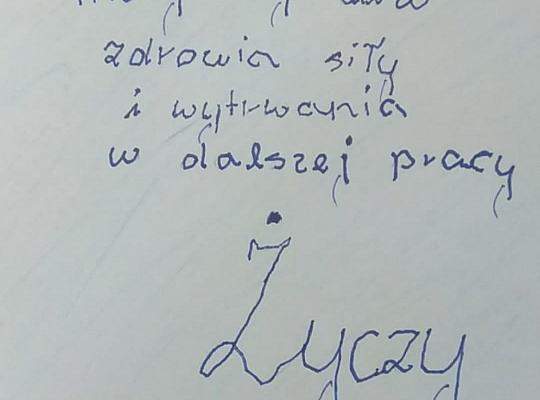 zdrowia siły
i wytrwania
w dalszej pracy
Życzy